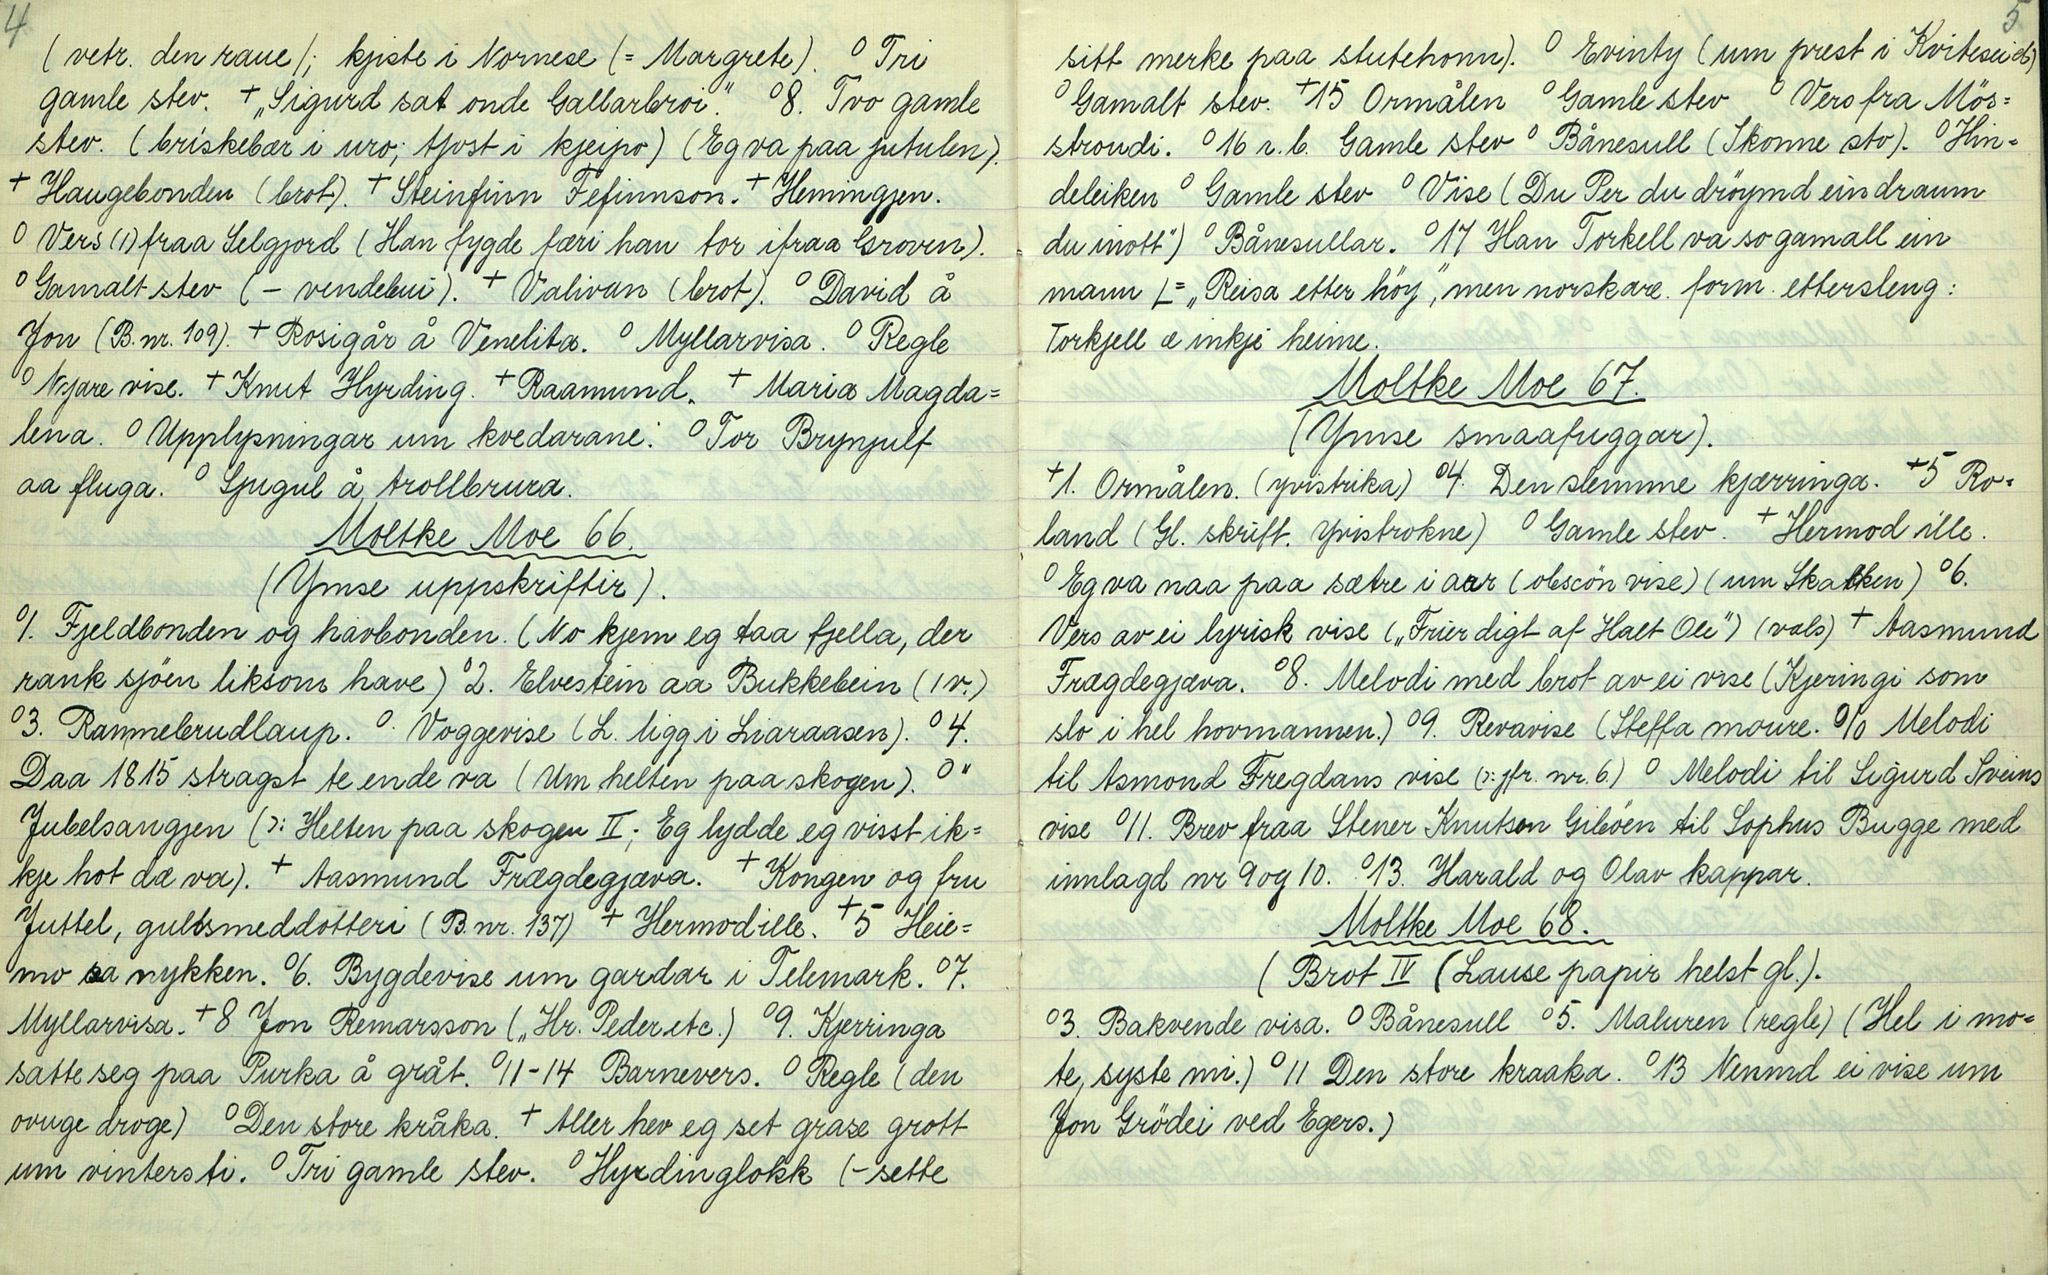 4
(vetr. den raue/; kjiste i Nornese (= Margrete). O Tri
gamle stev. + „Sigurd sat onde Gallarbroi". O8. Tvo gamle
stev. (briskebær i uro; tjost i kjeipo) (Eg va paa jutulen).
+ Haugebonden (brot). + Steinfinn Fefinnson. + Hemingjen.
O Vers (1) fraa Selgjord (Han fygde færi han tor ifraa Groven).
O Gamalt stev (– vendebui). + Valivan (brot). O David å
Jon (B. nr. 109). + Rosigår å Venelita. O Myllarvisa. O Regle
O Nyare vise. + Knut Hyrding. + Raamund. + Maria Magda=
lena. O Upplysningar um kvedarane. O Tor Brynjulf
aa fluga. O Sjugul å trollbrura.
Moltke Moe 66.
(Ymse uppskriftir).
O1. Fjeldbonden og havbonden. (No kjem eg taa fjella, der
rank sjöen liksom have) O2. Elvestein aa Bukkebein (1 v.)
O3. Rammebrudlaup. O. Voggevise (L. ligg i Liaraasen). O4.
Daa 1815 stragst te ende va (Um helten paa skogen). O"
Jubelsangjen (ɔ: Helten paa skogen II; Eg lydde eg visst ik=
kje hot dæ va). + Aasmund Frægdegjæva. + Kongen og fru
Juttel, gullsmeddotteri (B. nr. 137) + Hermod ille. +5 Heie=
mo aa nykken. O6. Bygdevise um gardar i Telemark. O7.
Myllarvisa. +8 Jon Remarsson („Hr. Peder etc.) O9. Kjerringa
satte seg paa Purka å gråt. O11-14 Barnevers. O Regle (den
ovuge droge) O Den store kråka. + Aller hev eg set grase grott
um vinters ti. O Tri gamle stev. O Hyrdinglokk (– sette
5
sitt merke paa stutehonn). O Evinty (um prest i Kviteseid)
O Gamalt stev. +15 Ormålen O Gamle stev O Vers fra Mös=
strondi. O16 r. b. Gamle stev O Bånesull (Skonne sto). O Hin=
deleiken O Gamle stev O Vise (Du Per du dröymd ein draum
du inott") O Bånesullar. O17 Han Torkell va so gamall ein
mann (= „Reisa etter höy", men norskare form. ettersleng:
Torkjell æ inkje heime.
Moltke Moe 67.
(Ymse smaafuggar).
+1. Ormålen. (yvistrika) O4. Den slemme kjærringa. +5 Ro=
land (Gl. skrift. Yvistrokne) O Gamle stev. + Hermod ille.
O Eg va naa paa sætre i aar (obscön vise) (um Skabken) O6.
Vers av ei lyrisk vise („Frier digt af Halt Ole") (vals) + Aasmund
Frægdegjæva. O8. Melodi med brot av ei vise (Kjeringi som
slo i hel hovmannen.) O9. Revavise (Steffa moure. O10 Melodi
til Asmond Fregdans vise (ɔ: jfr. nr. 6.) O Melodi til Sigurd Sveins
vise O11. Brev fraa Stener Knutson Giböen til Sophus Bugge med
innlagd nr 9 og 10. O13. Harald og Olav kappar.
Moltke Moe 68.
(Brot IV (Lause papir helst gl.).
O3. Bakvende visa. O Bånesull O5. Maluren (regle) (Hel i mo=
te, syste mi.) O11 Den store kraaka. O13 Nenmd ei vise um
Jon Grödei ved Egers.)